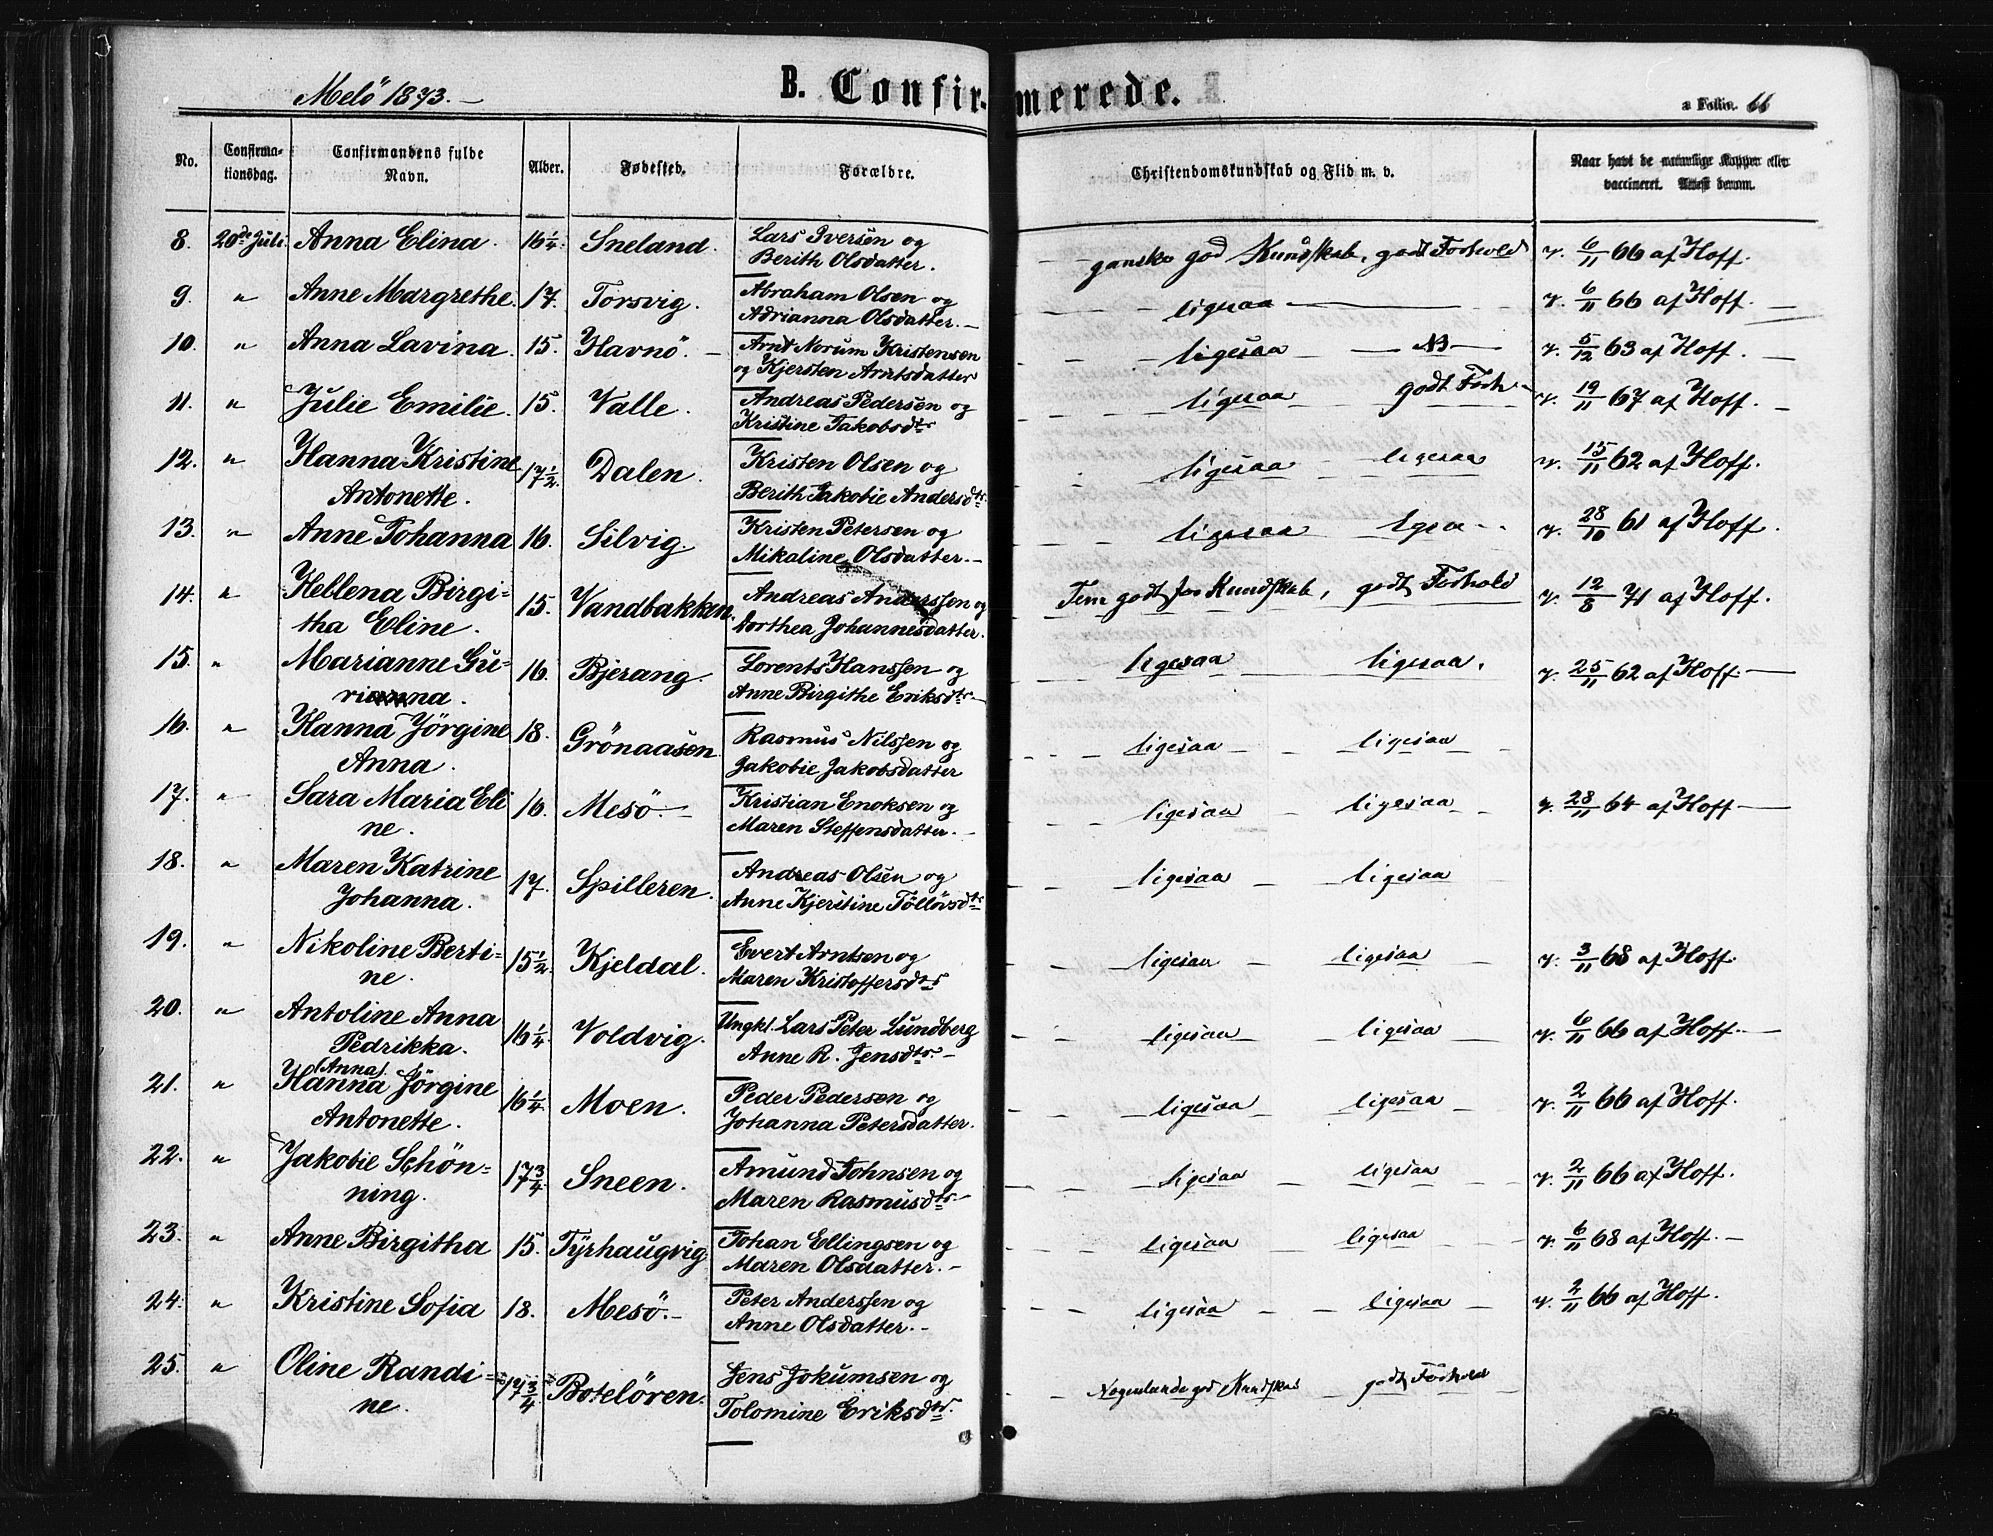 Melö 1873. —
B. Confirmerede.
a Folio. 66
No.
Confirma-
tionsdag.
Confirmandens fulde
Navn.
Alder.
Fødested.
Forældre.
Christendomskundskab og Flid m. v.
Naar havt de naturlige Kopper eller
vaccineret. Attest derom.
8. 20de Juli. Anna Elina. 16¼. Sneland. Lars Iversen og
Berith Olsdatter. ganske god Kundskab, godt Forhold v. 6/11 66 af Hoff.
9. " Anne Margrethe. 17. Torsvig. Abraham Olsen og
Adrianna Olsdatter. — ligesaa — v. 6/11 66 af Hoff. —
10. " Anna Lavina. 15. Havnö. — Arnt Norum Kristensen
og Kjersten Arntsdatter ligesaa — NB — v. 5/12 63 af Hoff. —
11. " Julie Emilie. 15. Valle. Andreas Pedersen og
Kristine Jakobsdtr ligesaa godt Forh — v. 19/11 67 af Hoff. —
12. " Hanna Kristine
Antonette. 17½. Dalen. Kristen Olsen og
Berith Jakobie Andersdtr. ligesaa — ligesaa v. 15/11 62 af Hoff.
13. " Anne Johanna 16. Silvig. Kristen Petersen og
Mikaline Olsdatter. — ligesaa v. 28/10 61 af Hoff.
14. " Hellena Birgi-
tha Eline. 15. Vandbakken. Andreas Anderssen og
Dorthea Johannesdatter. godt Kundskab, godt Forhold v. 12/8 71 af Hoff.
15. " Marianne Gu-
rianna. 16. Bjerang. Lorents Hanssen og
Anne Birgithe Eriksdtr — ligesaa ligesaa. v. 25/11 62 af Hoff. —
16. " Hanna Jörgine
Anna. 18. Grönaasen Rasmus Nilssen og
Jakobie Jakobsdatter ligesaa — ligesaa —
17. " Sara Maria Eli
ne. 16. Mesö. — Kristian Enoksen og
Maren Steffensdatter. — ligesaa — ligesaa — v. 28/11 64 af Hoff —
18. " Maren Katrine
Johanna. 17. Spilleren. Andreas Olsen og
Anne Kjerstine Töllövsdtr ligesaa — ligesaa
19. " Nikoline Berti-
ne. 15½. Kjeldal. Evert Arntsen og
Maren Kristoffersdtr ligesaa — ligesaa — v. 3/11 68 af Hoff.
20. " Antoline Anna
Pedrikka. 16¼ Voldvig. Ungkl. Lars Peter Lundberg
Anne R. Jensdtr. — ligesaa ligesaa — v. 6/11 66 af Hoff. —
21. " (Anna)
Hanna Jörgine
Antonette. 16¼ Moen. Peder Pedersen og
Johanna Petersdatter. ligesaa — ligesaa — v. 2/11 66 af Hoff.
22. " Jakobie Schön-
ning. 17¾ Sneen. Amund Johnsen og
Maren Rasmusdtr — ligesaa ligesaa v. 2/11 66 af Hoff.
23. " Anne Birgitha 15. Tyrhaugvig Johan Ellingsen og
Maren Olsdatter. — ligesaa ligesaa v. 6/11 68 af Hoff. —
24. " Kristine Sofia 18. Mesö. — Peter Anderssen og
Anne Olsdatter. — ligesaa — ligesaa — v. 2/11 66 af Hoff.
25. " Oline Randi-
ne. 17¾ Botelören. Jens Jokumsen og
Tolomine Eriksdtr. Nogenlunde god Kundskab — godt Forhold